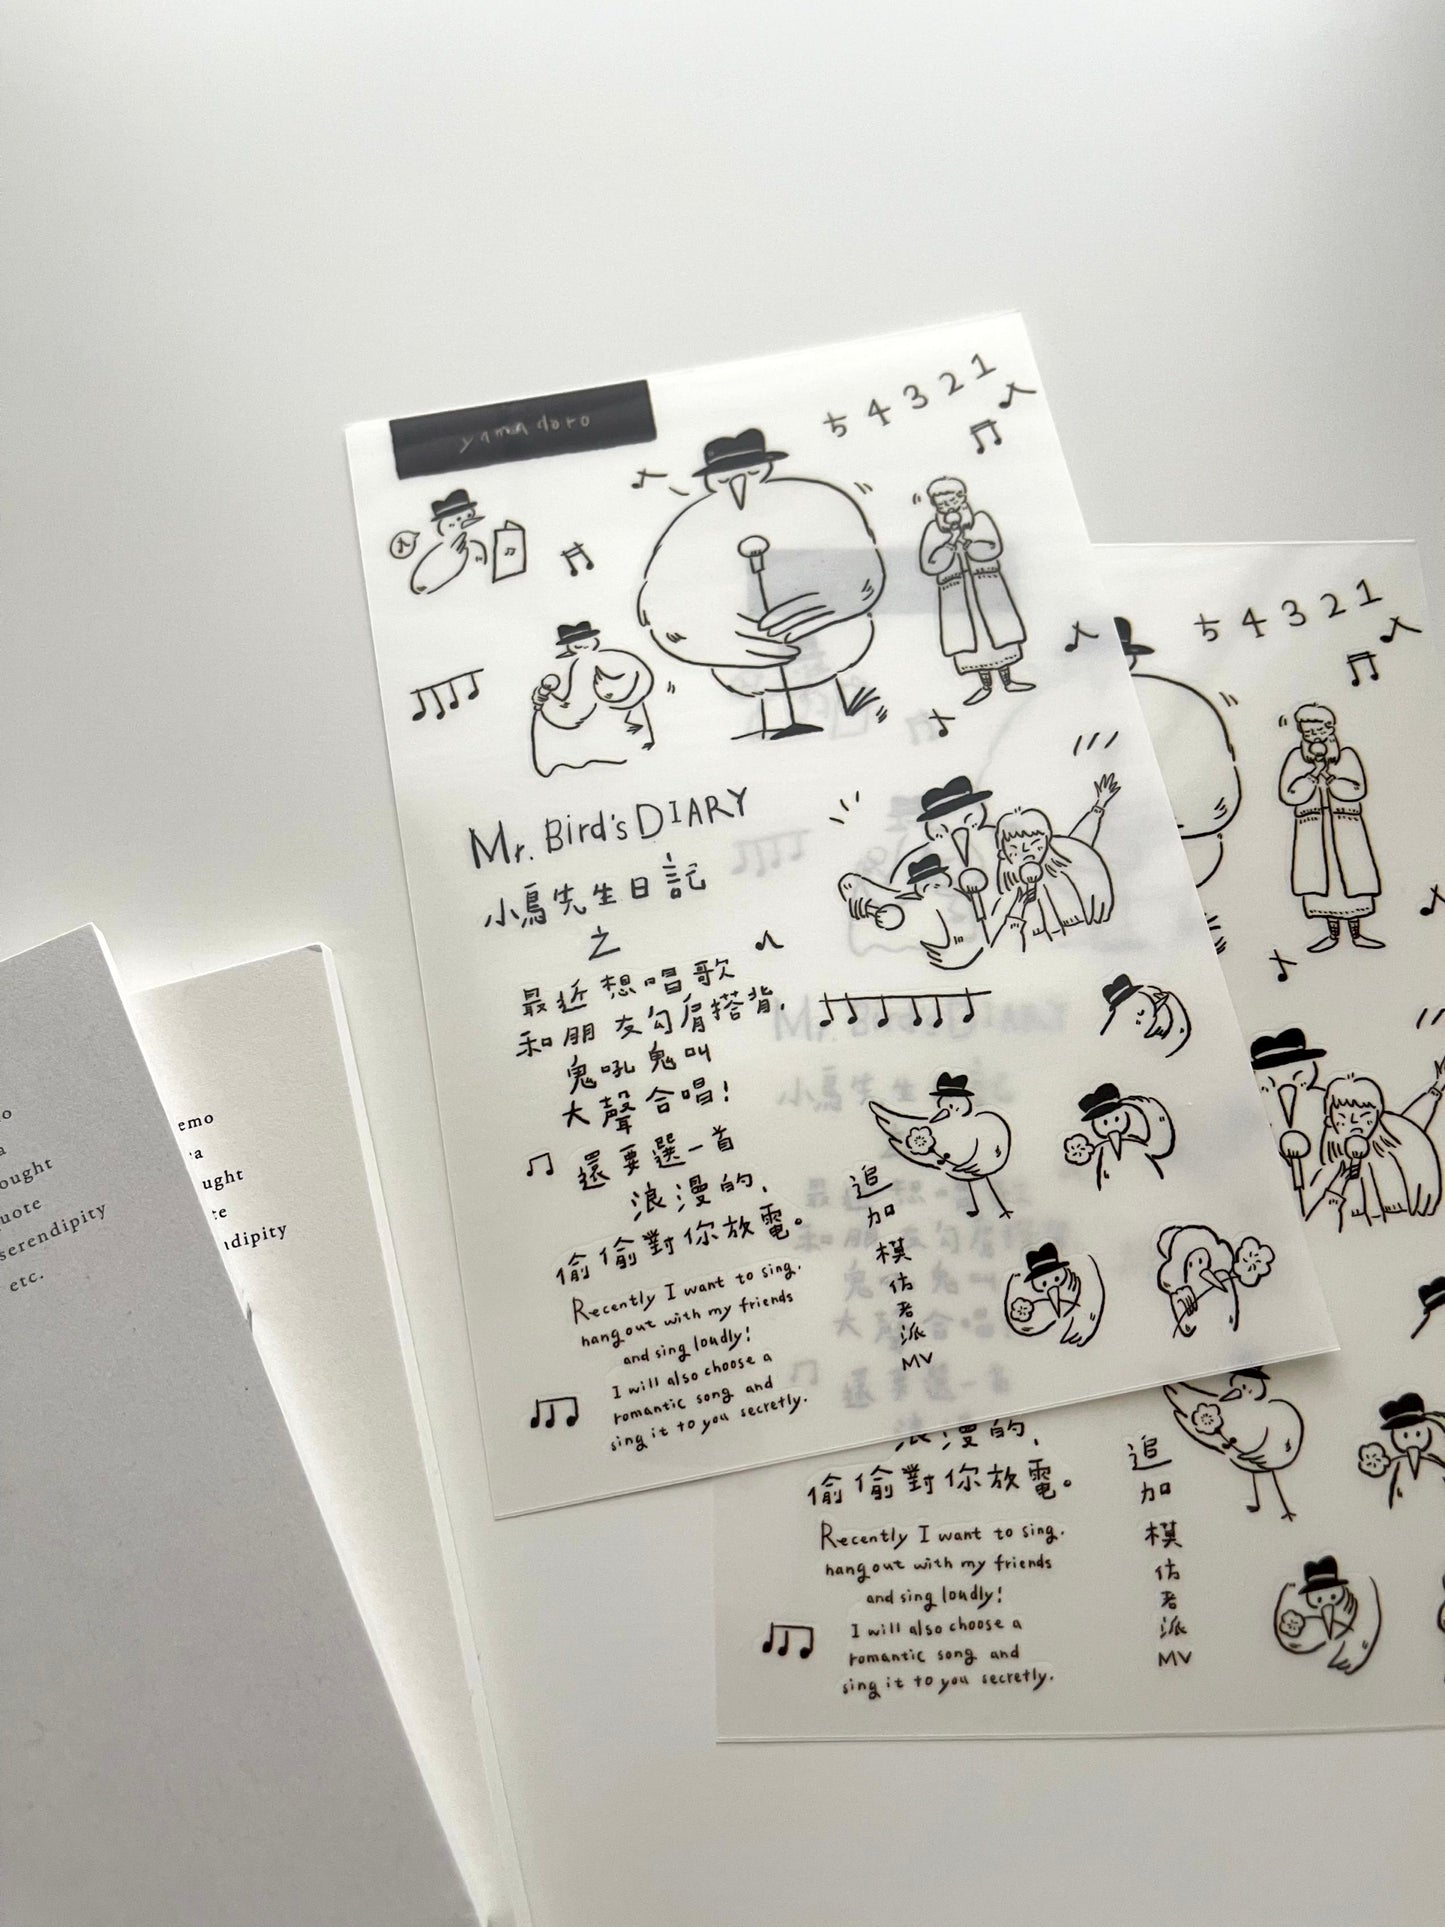 yamadoro
5 4 3 2 1
Mr. Bird's DIARY
小鳥先生日記
之
最近想唱歌
和朋友勾肩搭背,
鬼吼鬼叫
大聲合唱!
還要選一首
浪漫的、
偷偷對你放電。
Recently I want to sing.
hang out with my friends
and sing loudly!
I will also choose a
romantic song and
sing it to you secretly.
追
加
模
仿
老
派
MV
5 4 3 2 1
浪漫的、
偷偷對你放電。
Recently I want to sing.
hang out with my friends
and sing loudly!
I will also choose a
romantic song and
sing it to you secretly.
追
加
模
仿
老
派
MV
ought
uote
serendipity
etc.
emo
ea
ught
te
ndipity